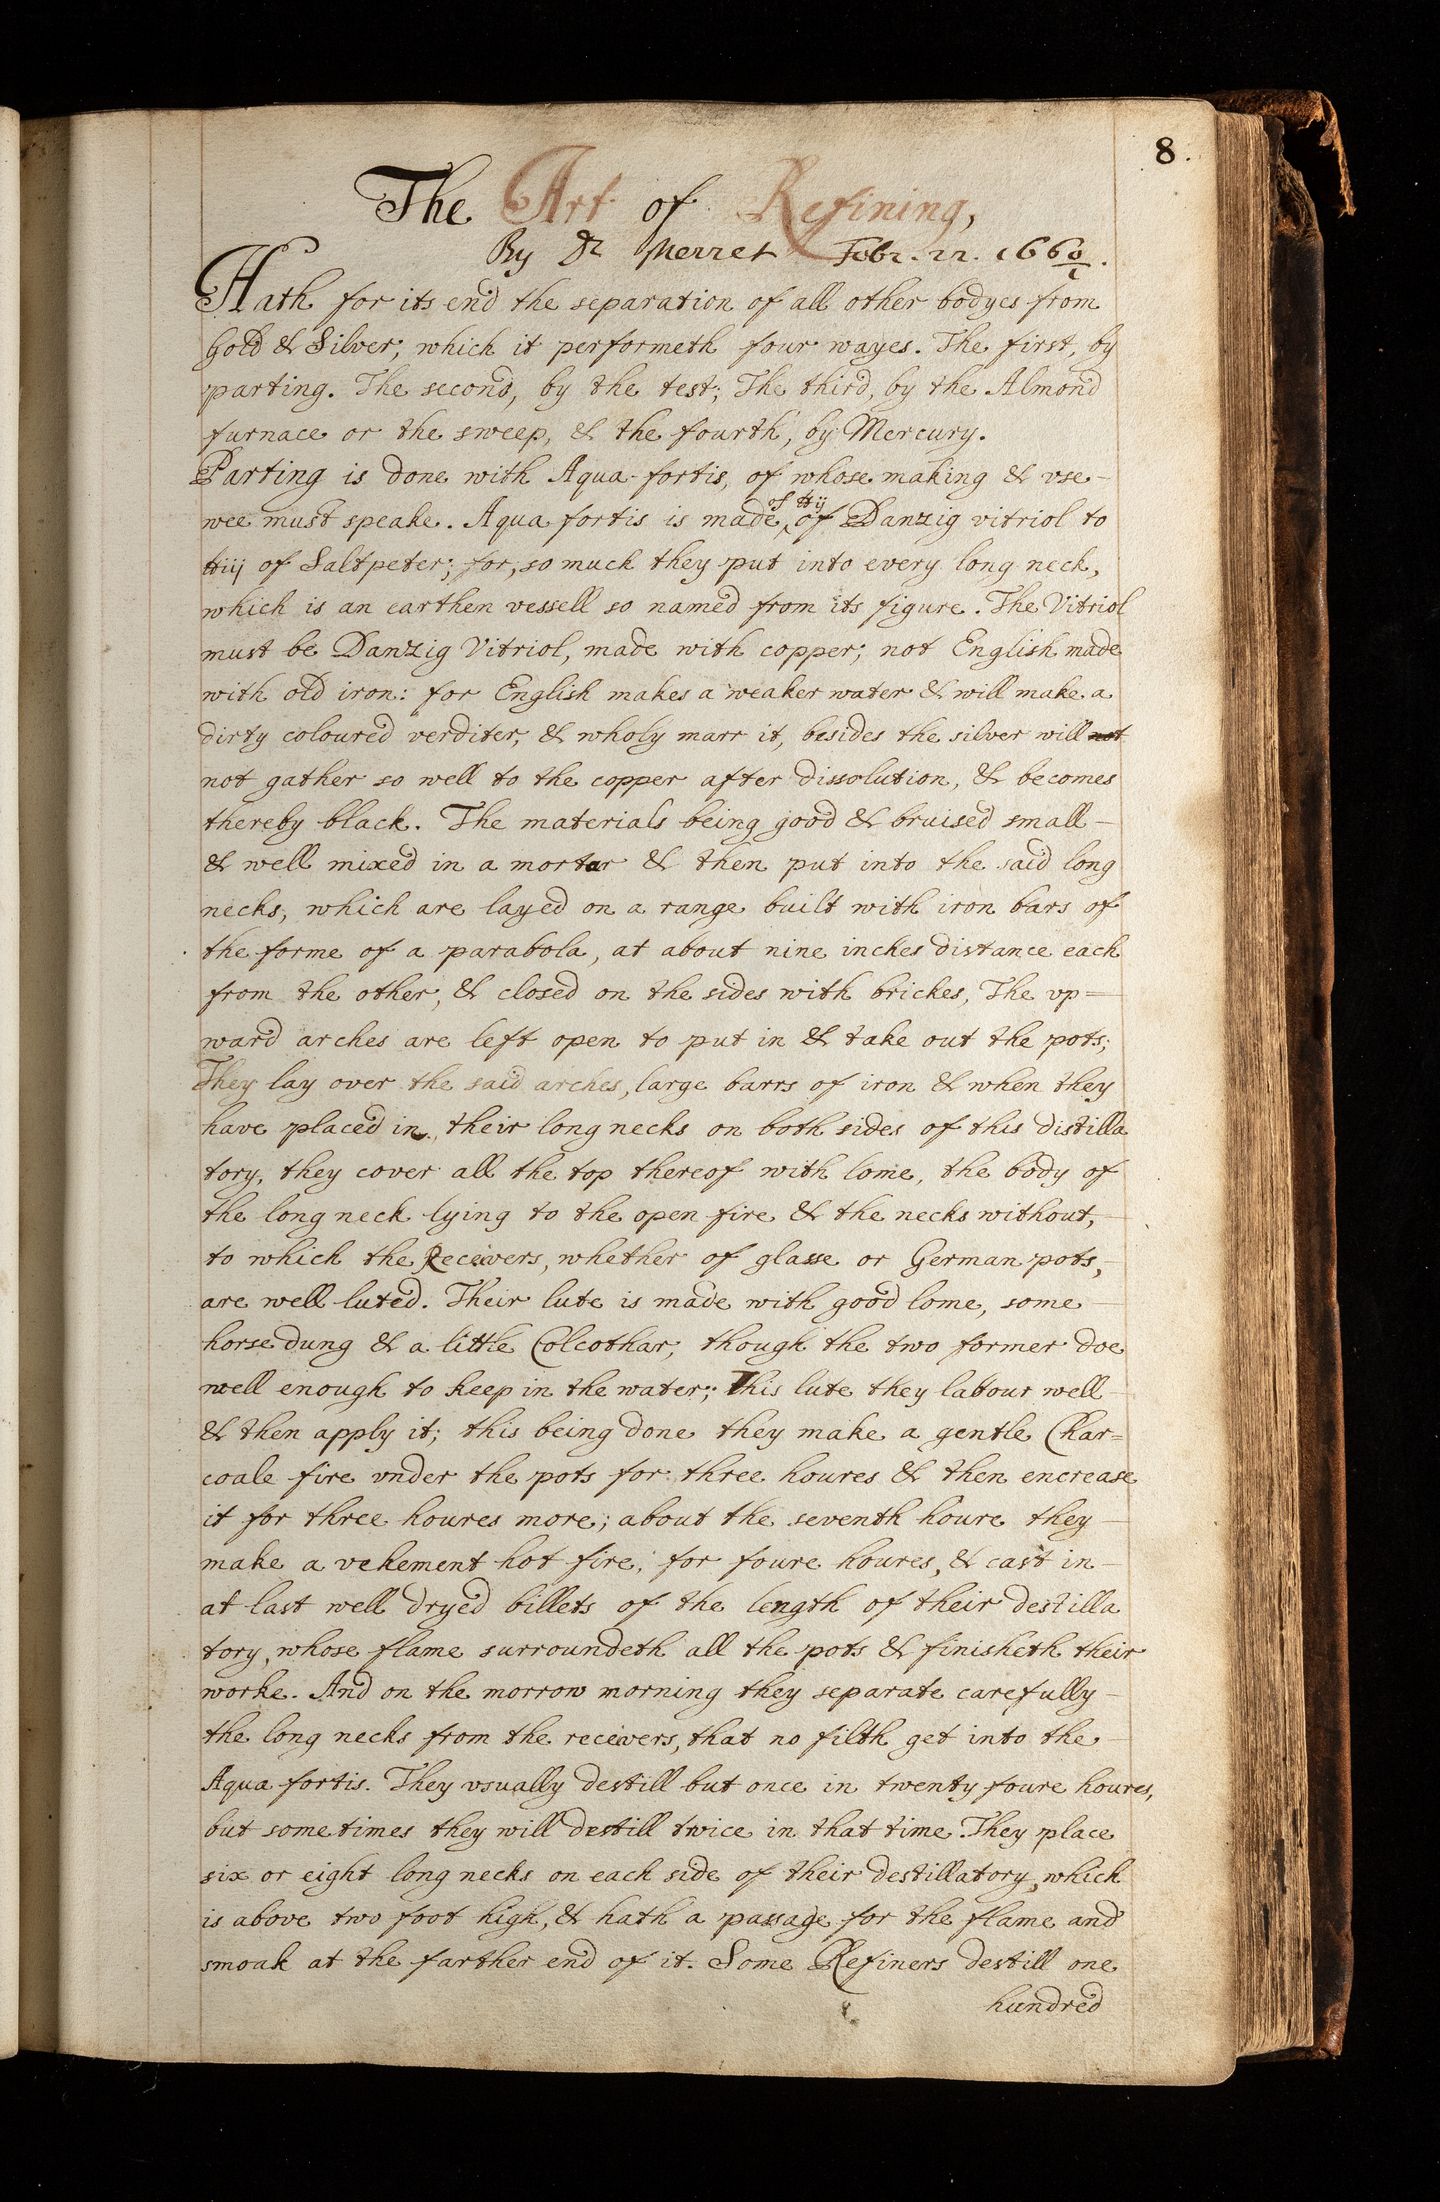 8.
The Art of Refining,
By Dr Merret Febr. 22. 1660/1.
Hath for its end the separation of all other bodyes from
Gold & Silver, which it performeth four wayes. The first, by
parting. The second, by the test; The third, by the Almond
furnace or the sweep, & the fourth, by Mercury.
Parting is done with Aqua-fortis, of whose making & vse-
wee must speake. Aqua fortis is made of ℔ij of Danzig vitriol to
℔iij of Saltpeter; for, so much they put into every long neck,
which is an earthen vessell so named from its figure. The Vitriol
must be Danzig Vitriol, made with copper; not English made
with old iron: for English makes a weaker water & will make a
dirty coloured verditer, & wholy marr it, besides the silver will not
not gather so well to the copper after dissolution, & becomes
thereby black. The materials being good & bruised small-
& well mixed in a mortar & then put into the said long
necks, which are layed on a range built with iron bars of
the forme of a parabola, at about nine inches distance each
from the other, & closed on the sides with brickes, The vp=
ward arches are left open to put in & take out the pots;
They lay over the said arches, large barrs of iron & when they
have placed in their long necks on both sides of this distilla
tory, they cover all the top thereof with lome, the body of
the long neck lying to the open fire & the necks without,
to which the Receivers, whether of glasse or German pots,
are well luted. Their lute is made with good lome, some
horse dung & a little Colcothar, though the two former doe
well enough to keep in the water; This lute they labour well
& then apply it; this being done they make a gentle Char=
coale fire vnder the pots for three houres & then encrease
it for three houres more; about the seventh houre they
make a vehement hot fire, for foure houres, & cast in
at last well dryed billets of the length of their destilla
tory, whose flame surroundeth all the pots & finisheth their
worke. And on the morrow morning they separate carefully
the long necks from the receivers, that no filth get into the
Aqua fortis. They vsually destill but once in twenty foure houres,
but sometimes they will destill twice in that time. They place
six or eight long necks on each side of their destillatory, which
is above two foot high, & hath a passage for the flame and
smoak at the farther end of it. Some Refiners destill one
hundred